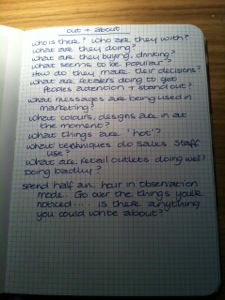 out + about
who is there? who are they with?
what are they doing?
what are they buying, drinking?
what seems to be popular?
How do they make their decisions?
what are retailers doing to get
peoples attention + stand out?
what messages are being used in
marketing?
what colours, designs are in at
the moment?
what things are 'hot'?
what techniques do sales staff
use?
what are retail outlets doing well?
Doing badly?
spend half an hour in observation
mode. Go over the things you've
noticed .... is there anything
you could write about?